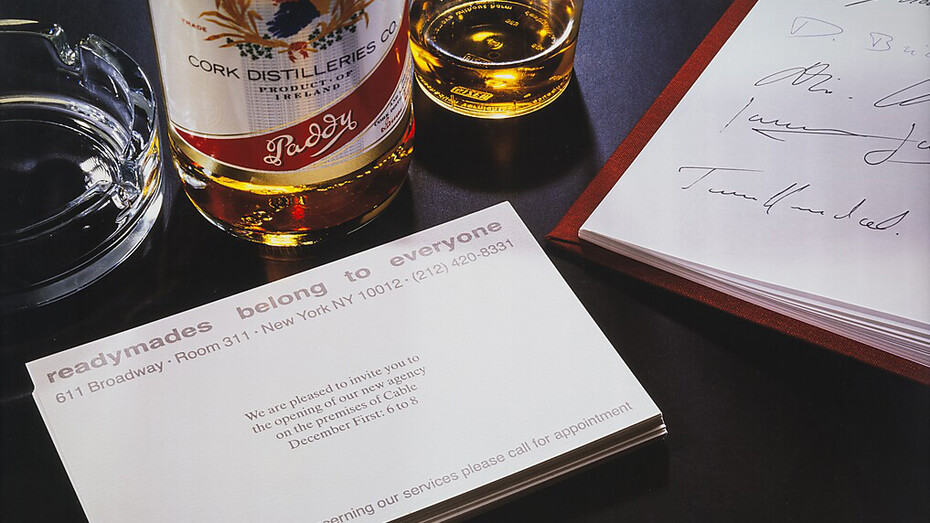 TRADE
CORK DISTILLERIES CO.
PRODUCT OF
IRELAND
Paddy
D.
readymades belong to everyone
611 Broadway · Room 311 · New York NY 10012 · (212) 420-8331
We are pleased to invite you to
the opening of our new agency
on the premises of Cable
December First: 6 to 8
cerning our services please call for appointment